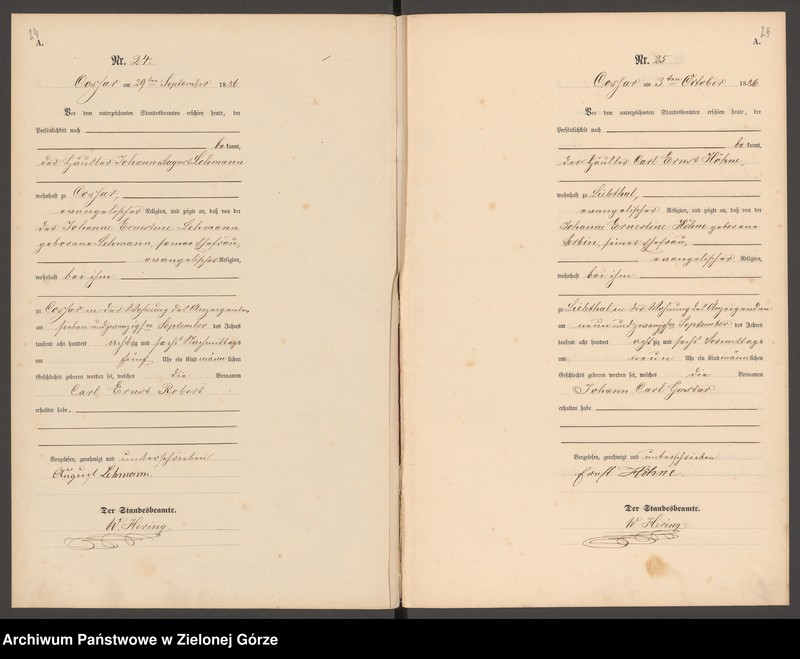 24
A.
Nr. 24.
Cossar am 29ten September 1886
Vor dem unterzeichneten Standesbeamten erschien heute, der
Persönlichkeit nach
bekannt,
der Häusler Johann August Lehmann
wohnhaft zu Cossar,
evangelischer Religion, und zeigte an, daß von der
der Johanne Ernestine Lehmann
geborene Lehmann, seiner Ehefrau,
evangelischer Religion,
wohnhaft bei ihm
zu Cossar in der Wohnung des Anzeigenden
am sieben und zwanzigsten September des Jahres
tausend acht hundert achtzig und sechs Nachmittags
um fünf Uhr ein Kind männlichen
Geschlechts geboren worden sei, welches die Vornamen
Carl Ernst Robert
erhalten habe.
Vorgelesen, genehmigt und unterschrieben
August Lehmann.
Der Standesbeamte.
W. Hering
25
A.
Nr. 25
Cossar am 3ten October 1886
Vor dem unterzeichneten Standesbeamten erschien heute, der
Persönlichkeit nach
bekannt,
der Häusler Carl Ernst Höhne,
wohnhaft zu Liebthal,
evangelischer Religion, und zeigte an, daß von der
Johanne Ernestine Höhne geborene
seiner Ehefrau,
evangelischer Religion,
wohnhaft bei ihm
zu Liebthal in der Wohnung des Anzeigenden
am neun und zwanzigsten September des Jahres
tausend acht hundert achtzig und sechs Vormittags
um neun Uhr ein Kind männlichen
Geschlechts geboren worden sei, welches die Vornamen
Johann Carl Gustav
erhalten habe
Vorgelesen, genehmigt und unterschrieben
Ernst Höhne.
Der Standesbeamte.
W. Hering
Archiwum Państwowe w Zielonej Górze